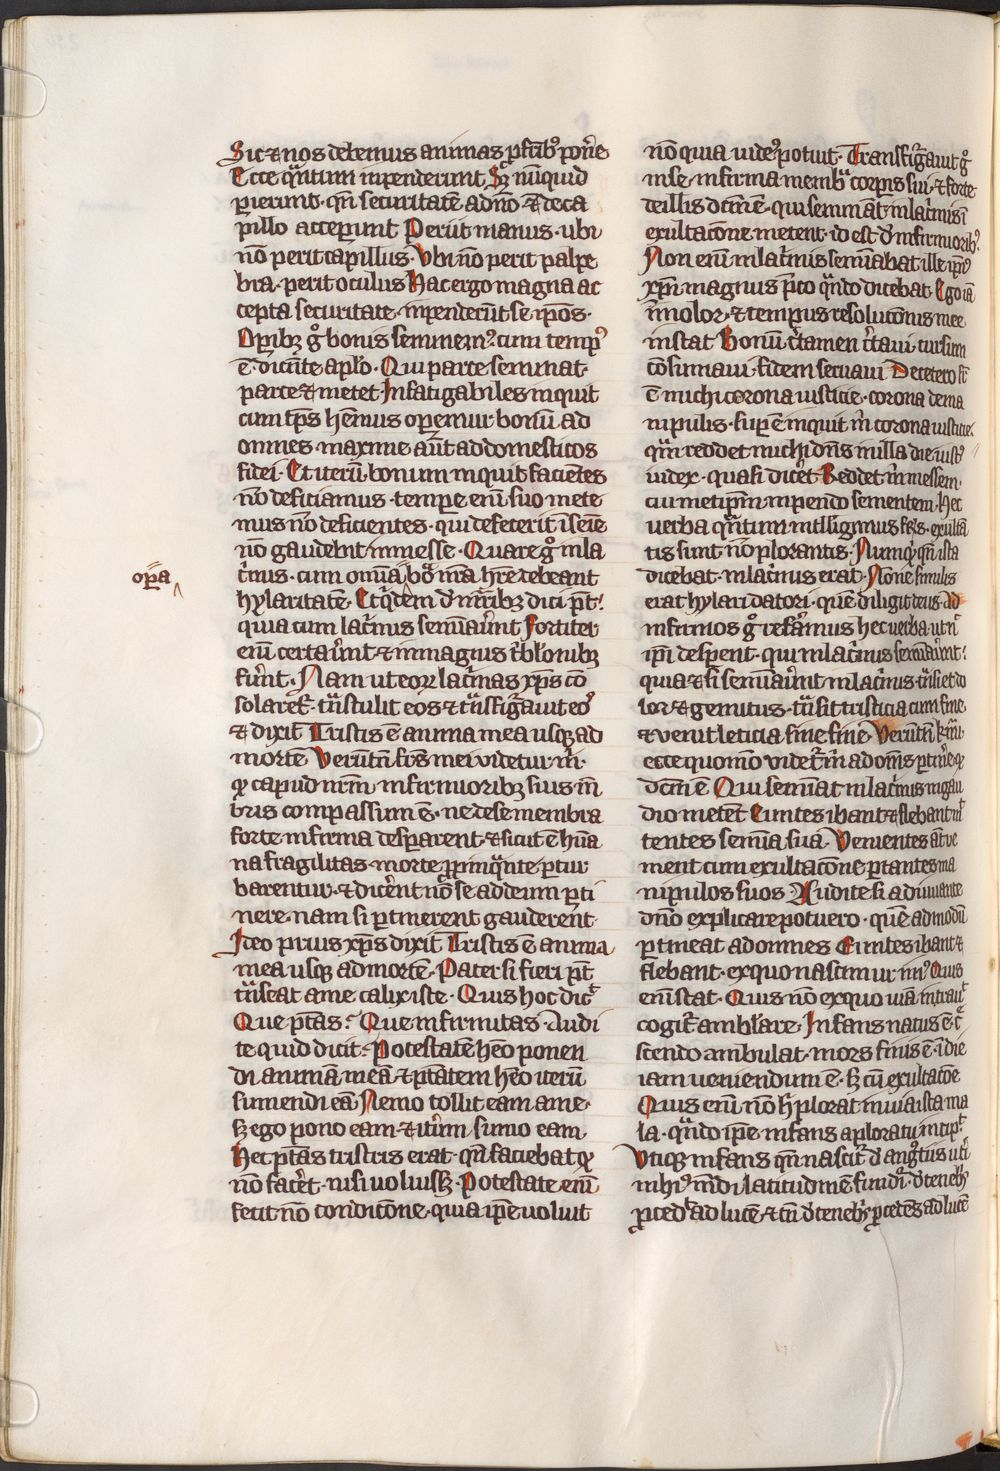 Sic ⁊ nos debemus animas ꝓ fratribꝰ ponẽ
Ecce qͣntum inpenderunt Sꝫ nũquid
ꝑierunt· qñ securitatẽ a dño ⁊ de ca
pillo acceperunt Periit manus· ubi
nõ perit capillus· Vbi nõ perit palpe
bra· perit oculus Hac ergo magna ac
cepta securitate· inpenderũt se ip̃os·
Opibꝫ gͦ bonis seminemꝰ· cum tempꝰ
ẽ· dicẽte aplo· Qui parce seminat·
parce ⁊ metet· Infatigabiles inquit
cum tp̃s hẽmus oꝑemur bonũ ad
omnes· maxime aũt ad domesticos
fidei· Et iterũ bonum inquit faciẽtes
nõ deficiamus· tempore eñ suo mete
mus nõ deficientes· qui defecerit ĩ seĩe
nõ gaudebit in messe· Quare gͦ in la
cͥmis· cum om̃ia boͣ nr̃a hr̃e debeant
oꝑa
hylaritatẽ· Et qͥdem de mr̃ibꝫ dici põt·
quia cum lacͥmis semĩauer̃t Fortiter
eñ certauer̃t ⁊ in magnis tͥblonibꝫ
fuer̃t· Nam ut eoꝝ lacͥmas xp̃s cõ
solaret᷑· tͣnstulit eos ⁊ tͣnsfigͣuit eoꝰ
⁊ dixit Tristis ẽ anima mea usqꝫ ad
mortẽ Verũtñ fr̃s mei videtur m̃·
qꝫ capud nr̃m· infirmioribꝫ suis mẽ
bris compassum ẽ· ne de se membra
forte infirma desperarent· ⁊ sicut ẽ hũa
na fragilitas· morte ꝓpinqͣnte ꝑtur
barentur· ⁊ dicer̃nt nõ se ad deum ꝑti
nere· nam si ꝑtinerent gauderent·
Ideo prius xp̃s dixit Tristis ẽ anima
mea usqꝫ ad mortẽ· Pater si fieri põt
tͣnseat a me calix iste· Quis hoc dicͭ
Que ptãs· Que infirmitas· Audi
te quid dicit· Potestatẽ hẽo ponen
di animã meã ⁊ ptãtem hẽo iterũ
sumendi eã Nemo tollit eam a me·
sꝫ ego pono eam ⁊ itͥm sumo eam
Hec ptãs tristis erat· qñ faciebat qꝫ
nõ facer̃t· nisi uoluissꝫ· Potestate eñi
fecit nõ condicõne· quia ip̃e uoluit
nõ quia uideꝰ potuit· Transfigͣuit gͦ
in se· infirma membͣ corꝑis sui· ⁊ forte
de illis dc̃m ẽ· qui semĩnãt in lacͥmis ĩ
exultacõne metent· id est de infirmioribꝰ
Non eñi in lacͥmis semĩabat ille ip̃iꝰ
xp̃i magnus p̃co qͣndo dicebat· Ego iã
ĩmolor· ⁊ tempus resolucõnis mee
instat Bonũ cͥtamen cͥtaui cursum
cõsumaui· fidem seruaui De cetero sͭ
ẽ michi corona iusticie· corona de ma
nipulis· suꝑẽ inquit m̃ corona iusticie·
qͣm reddet michi dñs in illa die iustꝰ
iudex· quasi dicer̃t Reddet m̃ messem·
cui met ip̃m inpendo sementem· Hec
uerba qͣntum intlligimus fr̃s· exultã
tis sunt nõ plorantis· Numqͥd qñ ista
dicebat· in lacͥmis erat· Nõne similis
erat hylari datori· quẽ diligit deus· ad
infirmos gͦ referamus hec uerba· ut nͥ
ip̃i desꝑent· qui in lacͥmis semĩauer̃t·
quia ⁊ si semĩauer̃t in lacͥmis· tͣnsiet do
lor ⁊ gemitus· tͣnsit tristicia cum fine·
⁊ venit leticia sine fine Verũtñ kr̃mi·
ecce quomõ videtͬ m̃ ad om̃s ꝑtiñe qꝫ
dc̃m ẽ Qui semĩãt in lacͥmis in gau
dio metẽt Euntes ibant ⁊ flebant mͭ
tentes semĩa sua· Venientes aũt ve
nient cum exultacõne portantes ma
nipulos suos Audite si adiuuante
dño explicare potuero· quẽadmodũ
ꝑtineat ad omnes Euntes ibant ⁊
flebant· ex quo nascimur imꝰ Quis
eñi stat· Quis nõ ex quo uiã intrauͭ
cogitͬ amblare· Infans natus ẽ· cͥ
scendo ambulat· mors finis ẽ· ĩ die
iam ueniendum ẽ· sꝫ cũ exultacõe
Quis eñi nõ hͥ plorat in uia ista ma
la· qͣndo ip̃e infans a ploratu incipͭ·
Vtiqꝫ infans qñ nascitͬ de angͦtiis utͥ
in hͥꝰ mũdi latitudinẽ fundͥ· de tenebͥs
ꝓcedͭ ad lucẽ· ⁊ tñ de tenebͥs ꝓcedẽs ad lucẽ